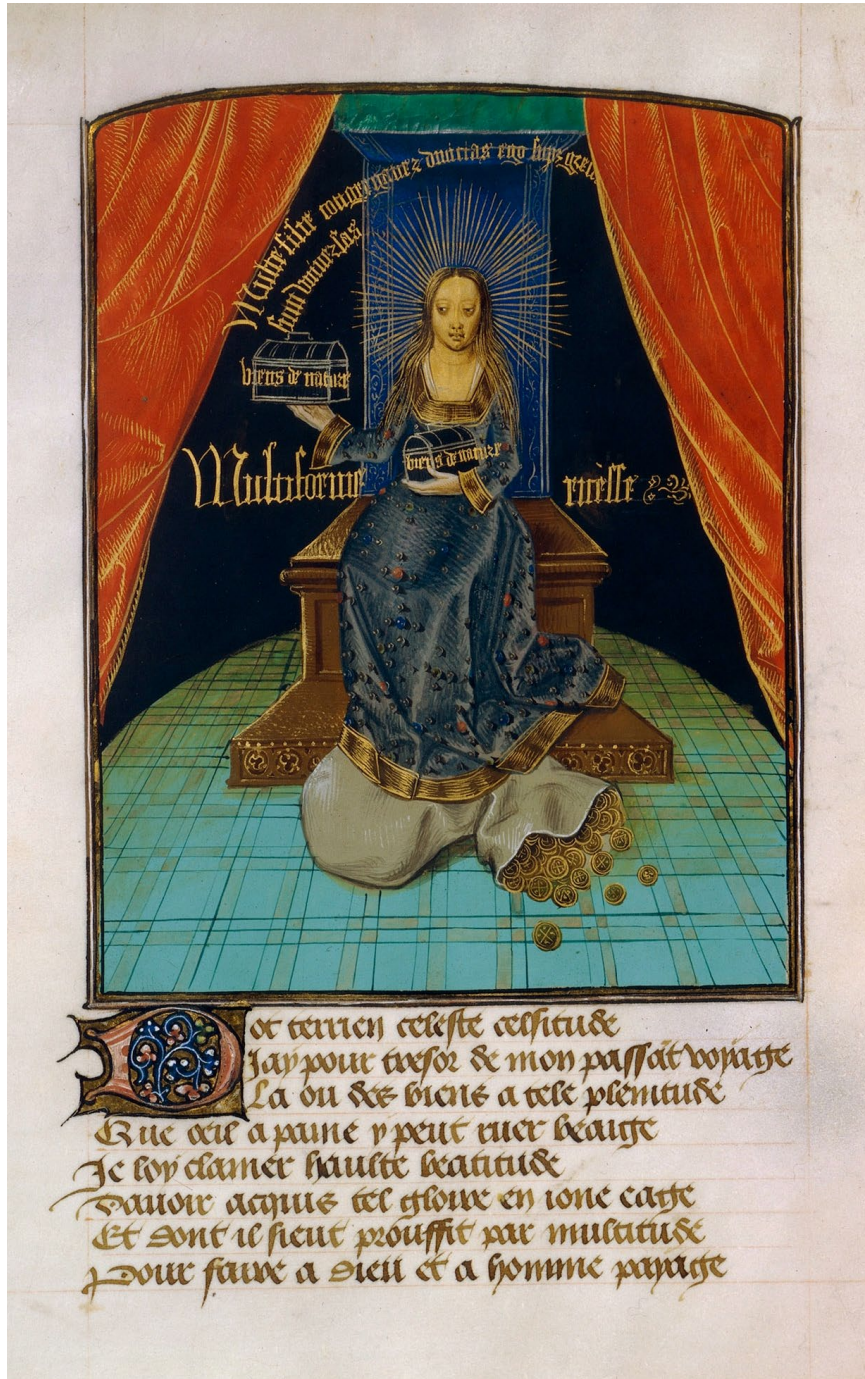 Multe filie congregauer diuicias ego
sum vniuersas
biens de nature
biens de nature
Multiforme ricesse
Dot terrien celeste celsitude
Jay pour tresor de mon passat voyage
La ou des biens a tele plenitude
Que oeil a paine y peut ruer
Je loy clamer haulte beatitude
Dauoir acquis tel gloire en ione eage
Et dont il sieut prouffit par multitude
Pour faire a dieu et a homme payage